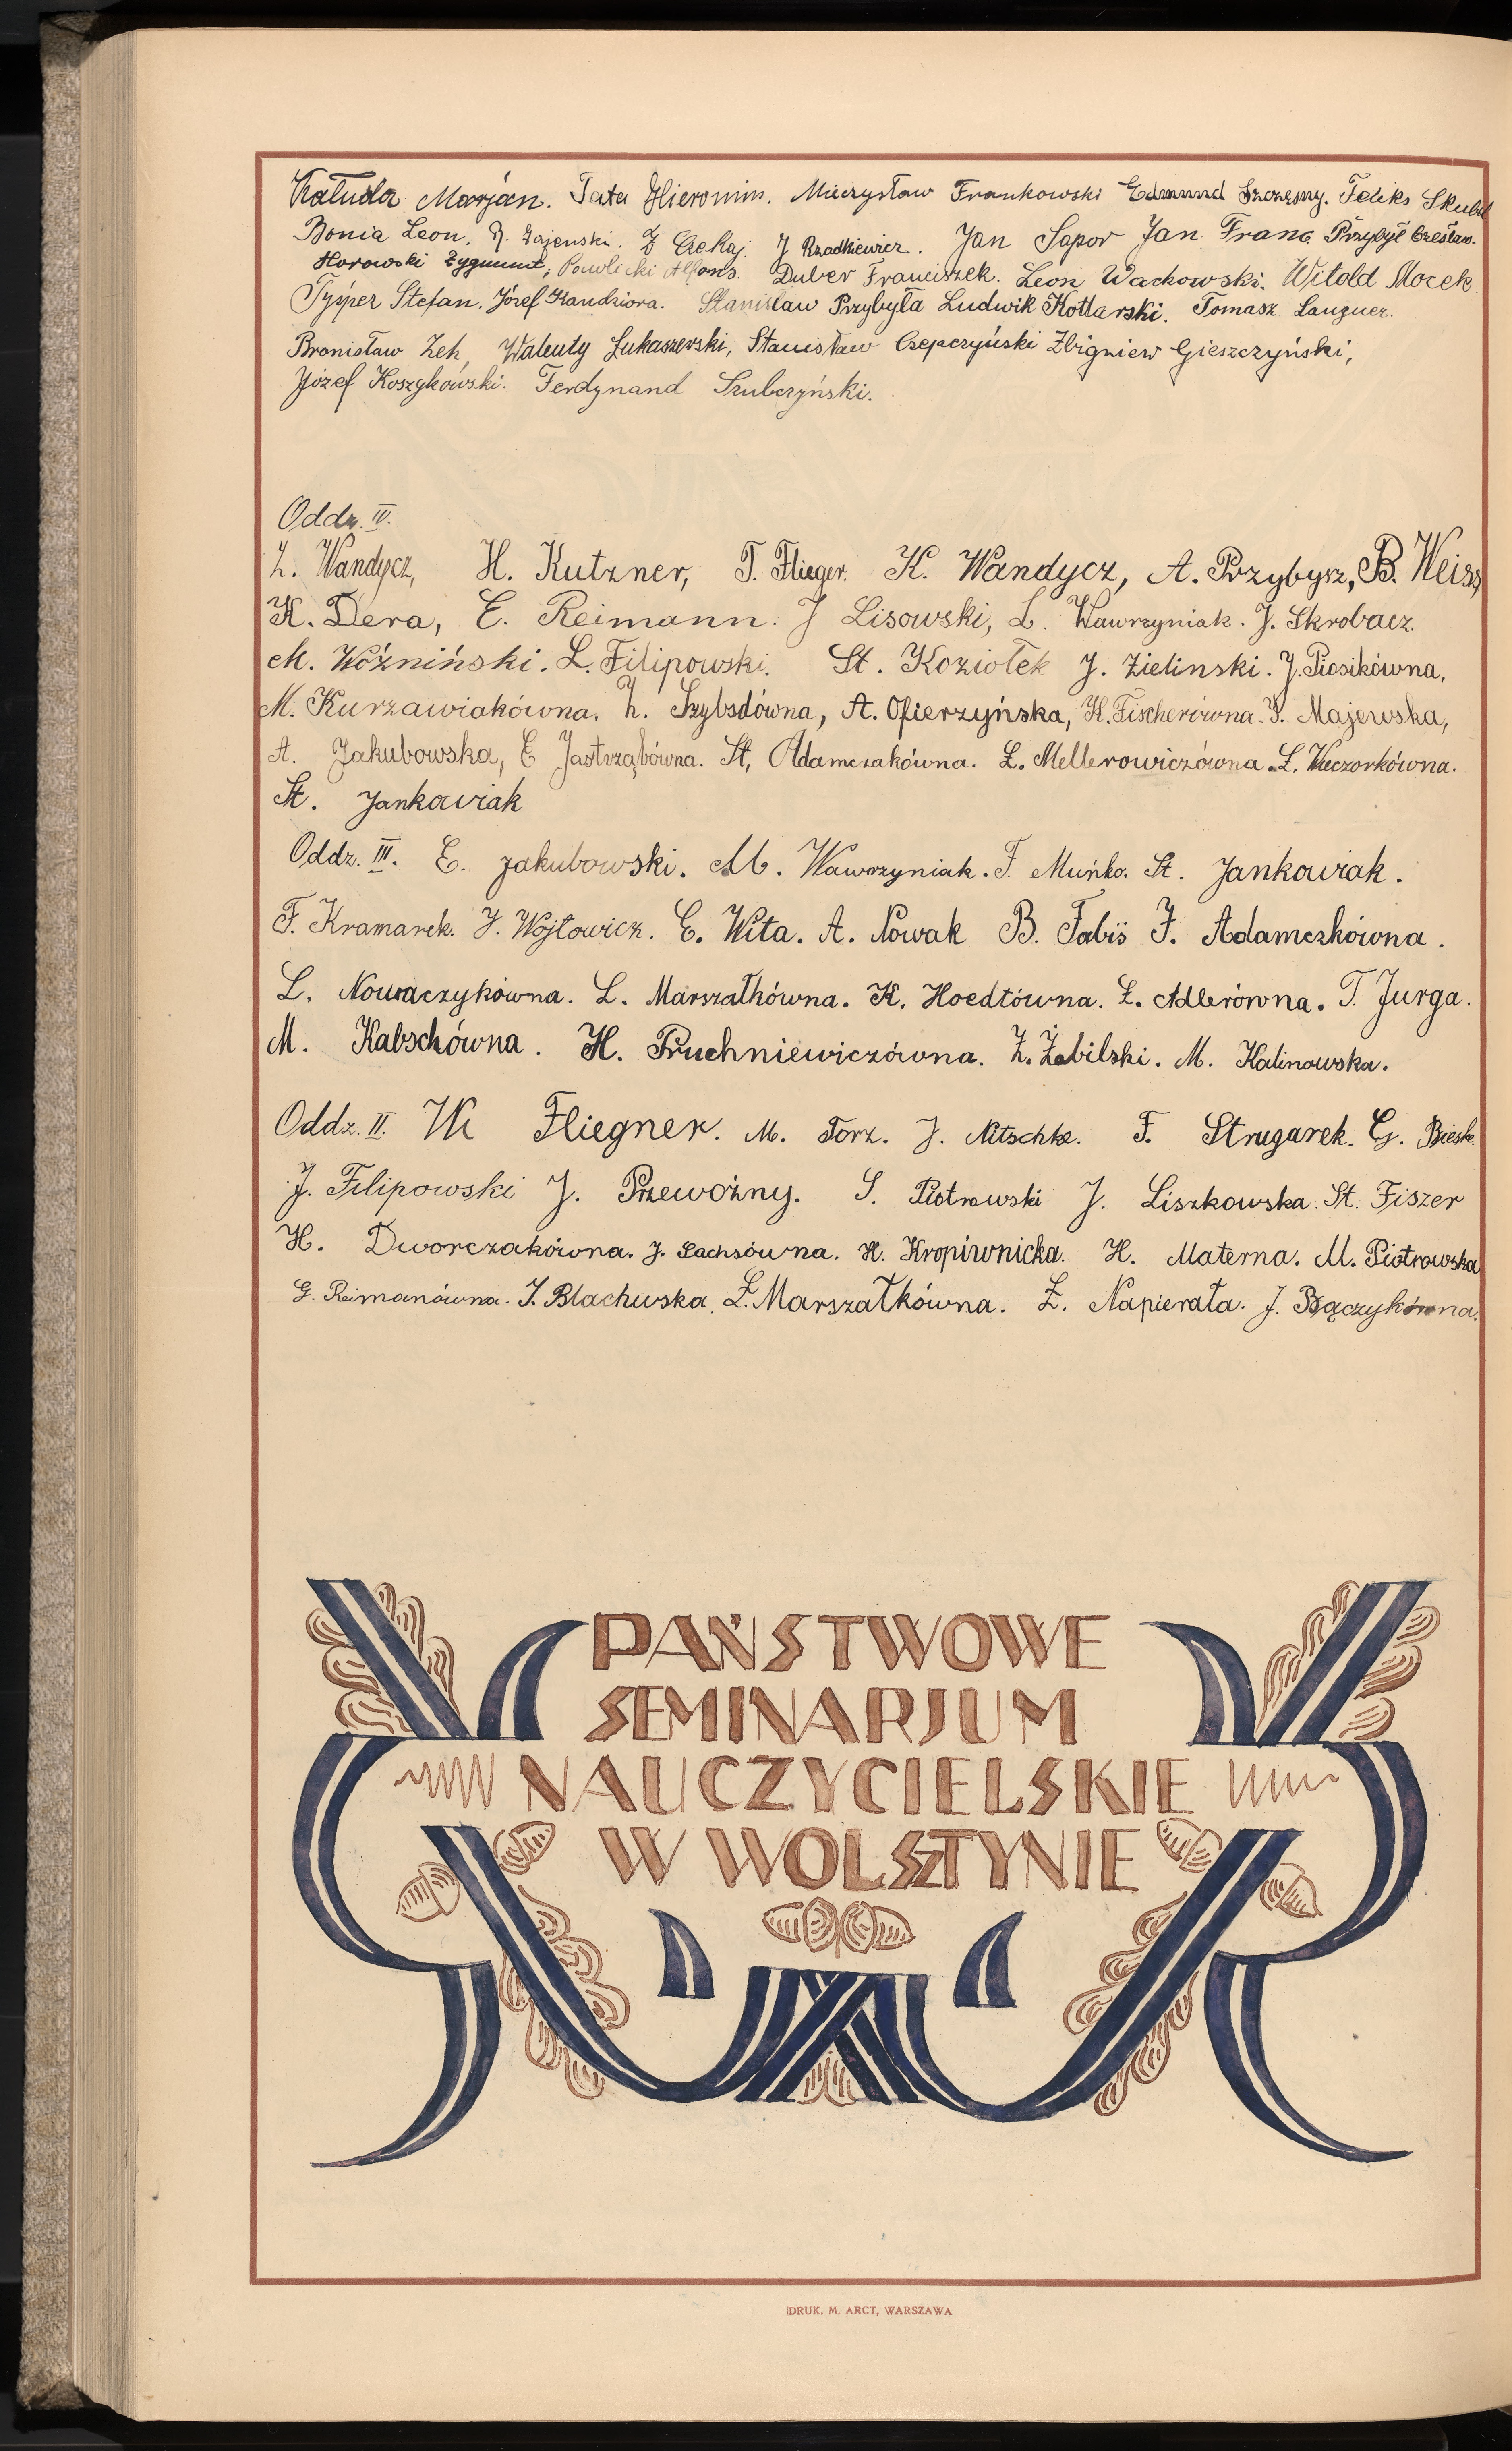 Kałuda Marjan. Tata Hieronim. Mieczysław Frankowski Edmund Szczęsny. Feliks Skubel
Bonia Leon. R. Zajenski. Z Czekaj. J Rzadkiewicz. Jan Sapor Jan Franc Przybył Czesław.
Horowski Zygmunt, Pawlicki Alfons. Duber Franciszek. Leon Wachowski. Witold Mocek.
Tyśper Stefan. Józef Kandziora. Stanisław Przybyła Ludwik Kotlarski. Tomasz Languer.
Bronisław Zeh, Walenty Łukaszewski, Stanisław Czepczyński Zbigniew Gieszczyński,
Józef Koszykowski. Ferdynand Szubczyński.
Oddz. IV.
Z. Wandycz, H. Kutzner, T. Flieger. K. Wandycz, A. Przybysz, B. Weiss
K. Dera, E. Reimann. J Lisowski, L. Wawrzyniak. J. Skrobacz.
M. Woźniński. L. Filipowski. St. Koziołek J. Zielinski. J. Piosikówna,
M. Kurzawiakówna. Z. Szybsdówna, A. Ofierzyńska, K. Fischerówna. J. Majewska,
A. Jakubowska, E Jastrząbówna. St, Adamczakówna. Ł. Mellerowiczówna. L. Wieczorkówna.
St. Jankowiak
Oddz. III. E. Jakubowski. M. Wawrzyniak. F. Muńko. St. Jankowiak.
F. Kramarek. J. Wojtowicz. E. Wita. A. Nowak B. Fabiś J. Adamczkówna.
L. Nowaczykówna. L. Marszałkówna. K. Hoedtówna. Ł. Adlerówna. T. Jurga.
M. Kabschówna. H. Pruchniewiczówna. Z. Żabilski. M. Kalinowska.
Oddz. II. Wł Fliegner. M. Torz. J. Nitschke. F. Strugarek. G. Biesk.
J. Filipowski J. Przewoźny. S. Piotrowski J. Liszkowska. St. Fiszer
H. Dworczakówna. J. Sachsówna. H. Kropiwnicka. H. Materna. M. Piotrowska
G. Reimanówna. J. Blachuska. Ł. Marszałkówna. Ł. Napierała. J. Bączykówna.
PAŃSTWOWE
SEMINARJUM
NAUCZYCIELSKIE
W WOLSZTYNIE
DRUK. M. ARCT, WARSZAWA